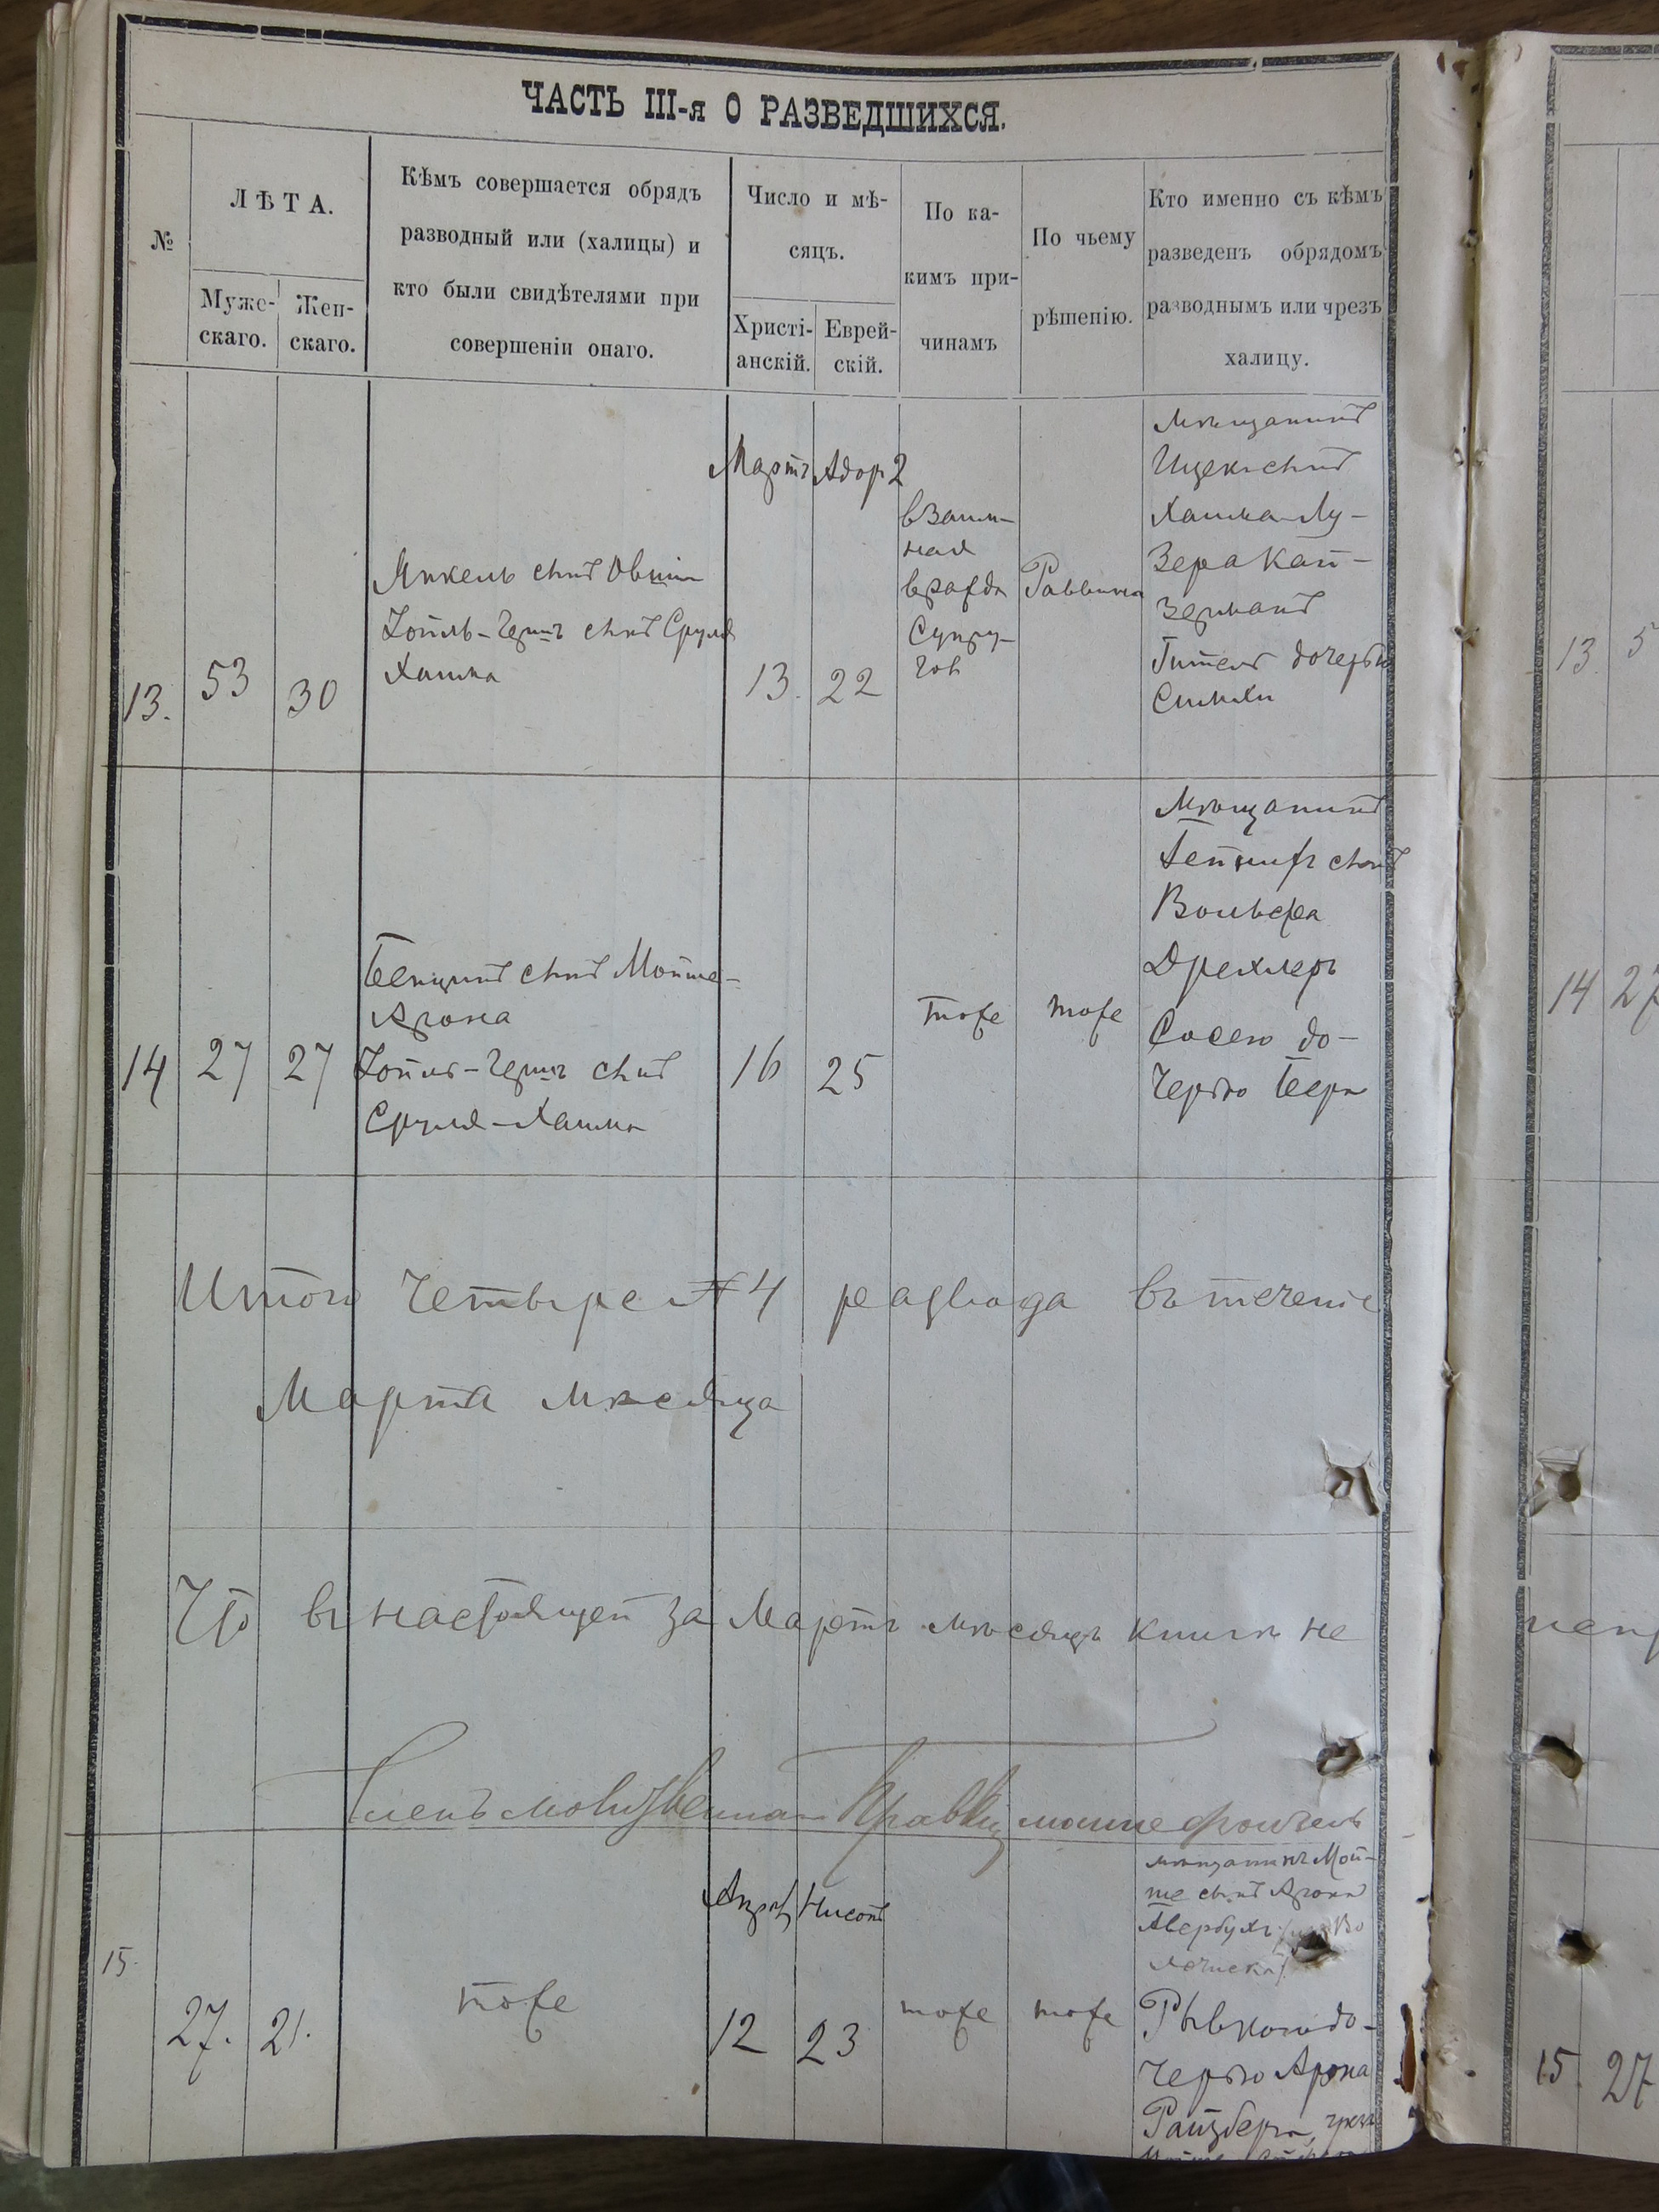 ЧАСТЬ III-я О РАЗВЕДШИХСЯ.
№
ЛѢТА.
Мужс-
скаго.
Жен-
скаго.
Кѣмъ совершается обрядъ
разводный или (халицы) и
кто были свидѣтелями при
совершеніи онаго.
Число и мѣ-
сяцъ.
Христі-
анскій.
Еврей-
скій.
По ка-
кимъ при-
чинамъ
По чьему
рѣшенію.
Кто именно съ кѣмъ
разведенъ обрядомъ
разводнымъ или чрезъ
халицу.
13.
53
30
Янкель сынъ Овшія
Копель-Гершъ сынъ Сруля
Хаима
Мартъ
13.
Адар 2
22
взаим-
ная
вражда
супру-
гов
Раввина
мѣщанинъ
Ицекъ сынъ
Хаима-Лу-
зера Кай-
зерманъ
Гителъ дочерью
Симхи
14
27
27
Бенционъ сынъ Мойше-
Арона
Копель-Гершъ сынъ
Сруля-Хаима
16
25
тоже
тоже
Мѣщанинъ
сынъ
Вольфа
Дрехлеръ
Сосею до-
черью Бера
Итого четыре 4 развода въ теченіе
Марта мѣсяца
Что въ настоящей за Мартъ мѣсяцъ книгѣ не
Членъ
15.
27.
21.
тоже
Апрѣль
12
Нисонъ
23
тоже
тоже
мѣщанинъ Мой-
ше сынъ Арона
Авербухъ
Рывкою до-
черью Арона
Райзберга, чрезъ
13
5
14
27
15
27